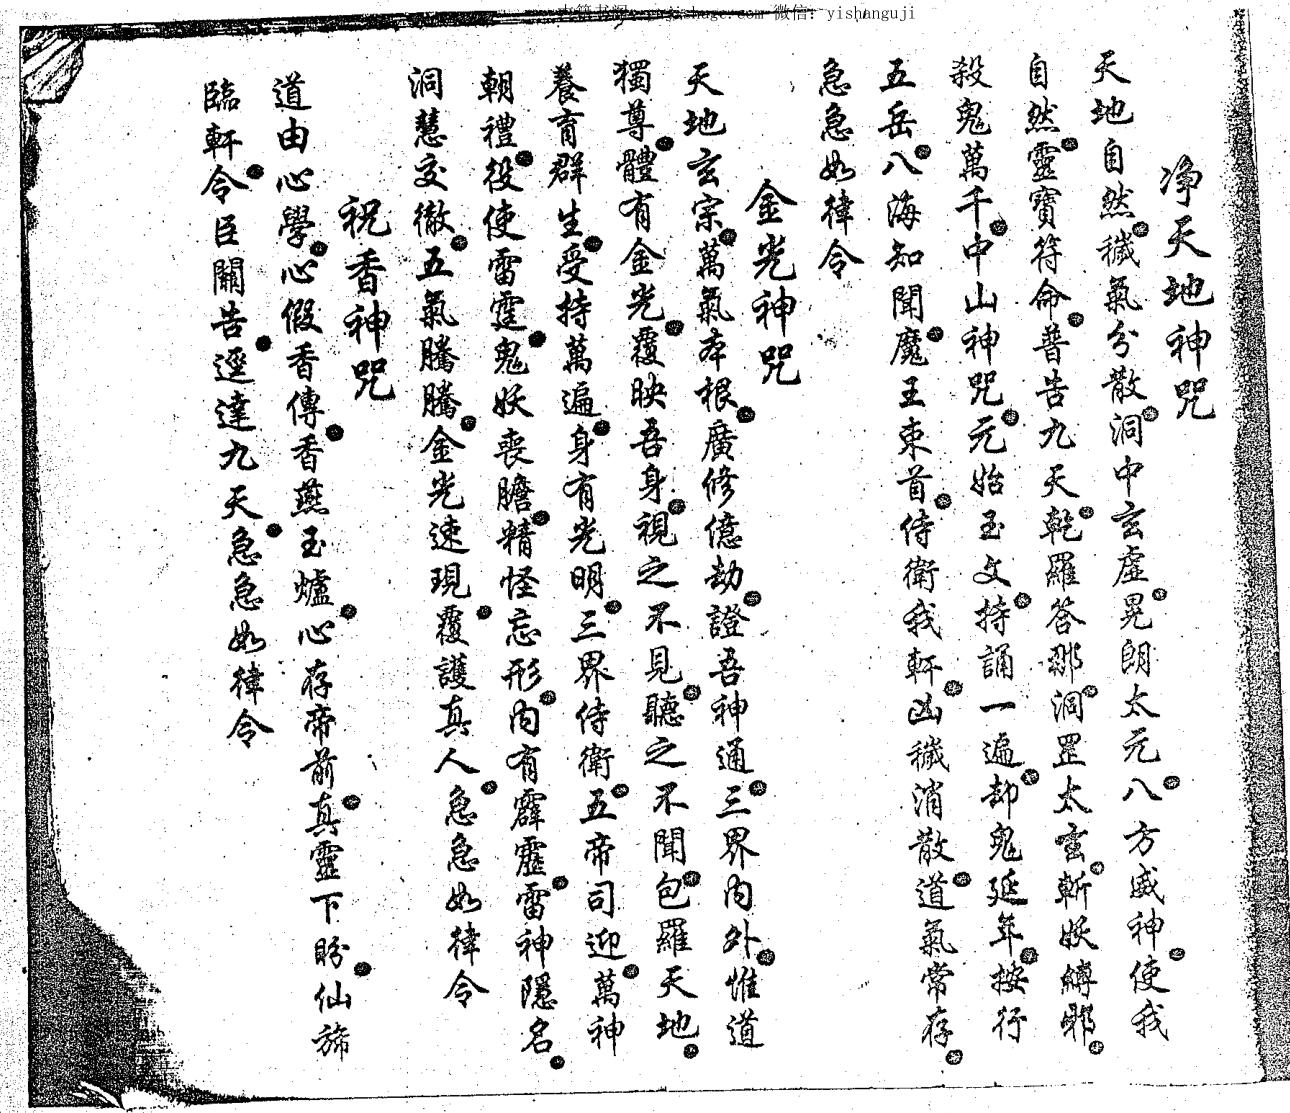 微信: yishanguji
净天地神咒
天地自然穢氣分散洞中玄虛晃朗太元八方威神使我
自然靈寶符命普告九天乾羅答那洞罡太玄斬妖縛邪
殺鬼萬千中山神咒元始玉文持誦一遍却鬼延年按行
五岳八海知聞魔王束首侍衛我軒凶穢消散道氣常存
急急如律令
金光神咒
天地玄宗萬氣本根廣修億劫證吾神通三界内外惟道
獨尊體有金光覆映吾身視之不見聽之不聞包羅天地
養育群生受持萬遍身有光明三界侍衛五帝司迎萬神
朝禮役使雷霆鬼妖喪膽精怪忘形内有霹靂雷神隱名
洞慧交徹五氣騰騰金光速現覆護真人急急如律令
祝香神咒
道由心學心假香傳香燕玉爐心存帝前真靈下盼仙旆
臨軒令臣關告逕達九天急急如律令